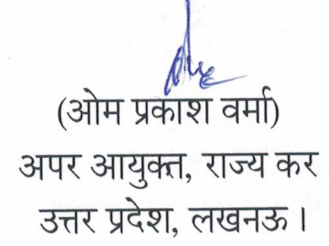 (ओम प्रकाश वर्मा)
अपर आयुक्त, राज्य कर
उत्तर प्रदेश, लखनऊ।